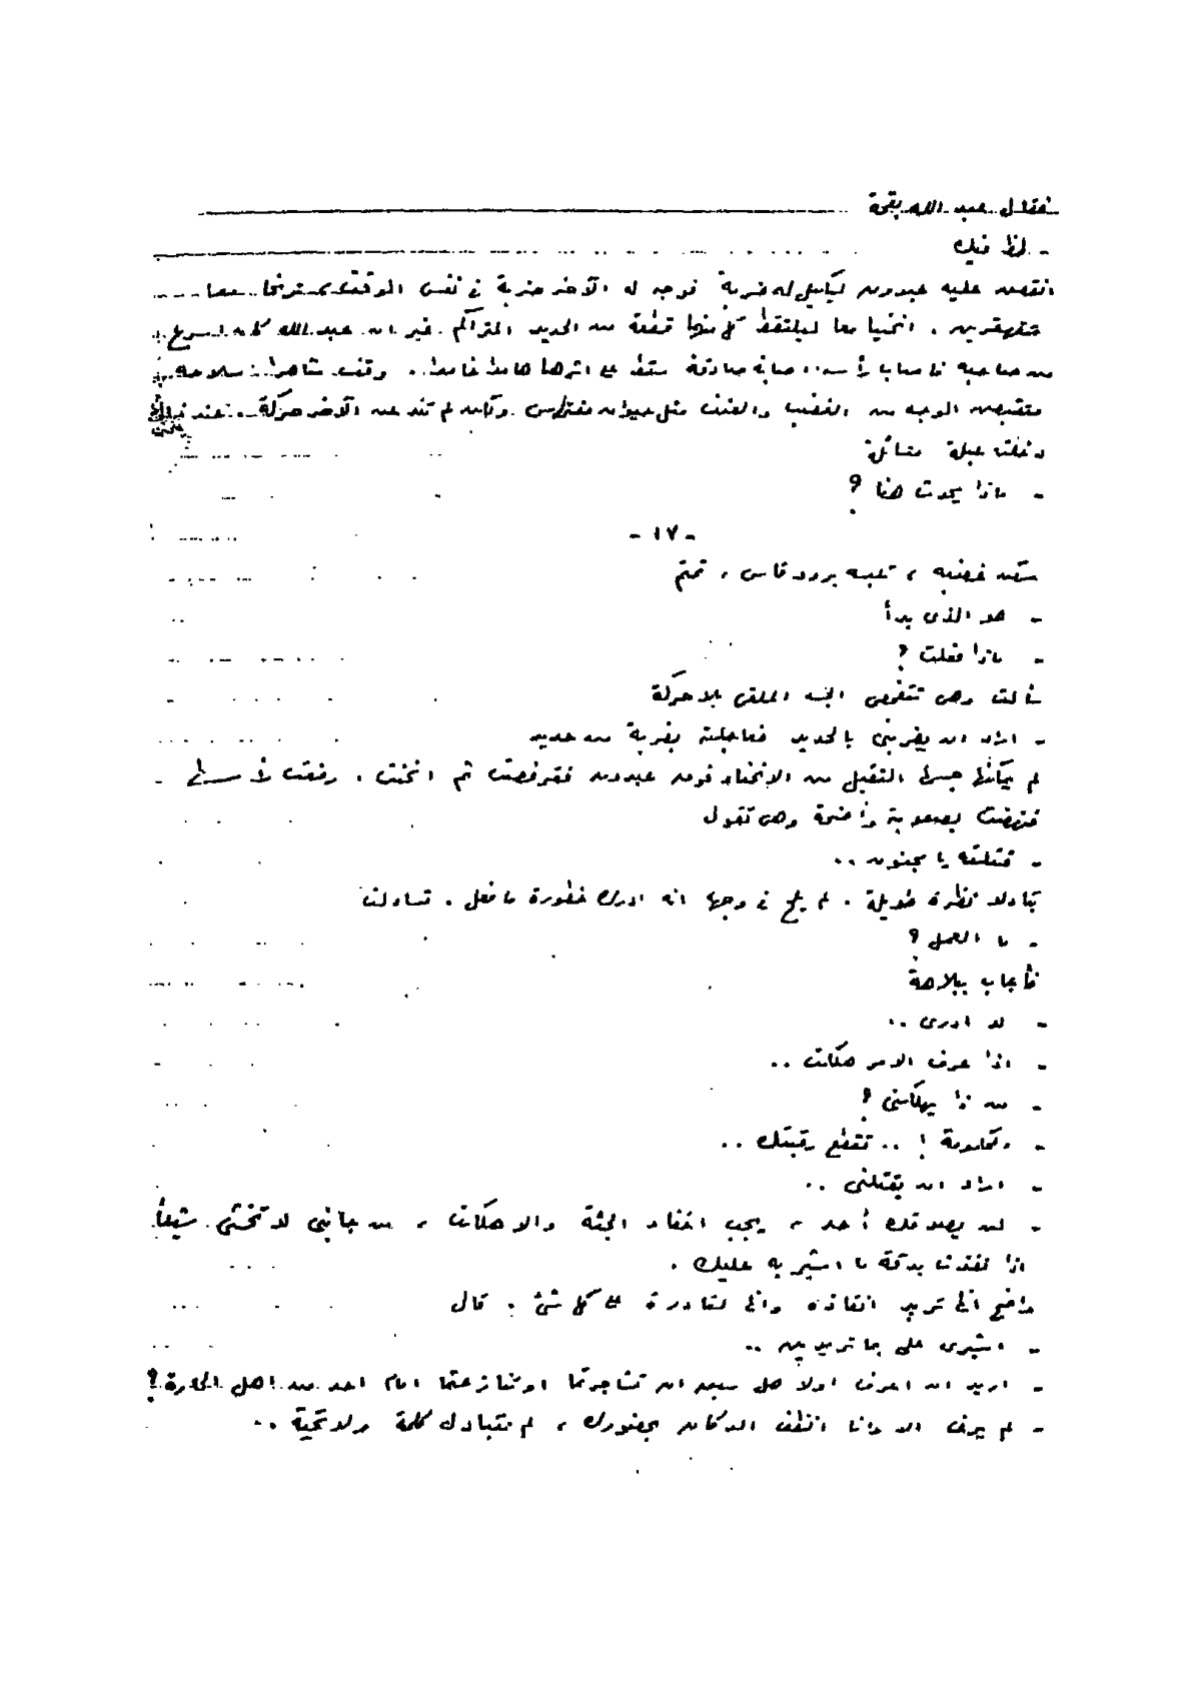 فقال عبد الله بقحة
- لظ فيك
انقض عليه عبدون ليكيل له ضربة فوجه له الآخر ضربة في نفس الوقت فترنحا معا
متقهقرين . انحنيا معا ليلتقط كل منهما قطعة من الحديد المتراكم غير ان عبد الله كان اسرع
من صاحبه فاصاب رأسه اصابة صادقة سقط على اثرها هامدا . وقف شاهرا سلاحه
متقبض الوجه من الغضب والعنف مثل حيوان مفترس ولكن لم تند عن الآخر حركة . عند ذلك
دخلت عبلة متسائلة
- ماذا يحدث هنا ؟
- ١٧ -
سكن غضبه ، تلبسه برود قاس ، تمتم
- هو الذى بدأ
- ماذا فعلت ؟
سألت وهى تتفحص الجسد الملقى بلا حركة
- اراد ان يضربنى بالحديد فعاجلته بضربة من حديد
لم يمكنها جسمها الثقيل من الانحناء فوق عبدون فقرفصت ثم انحنت . رفعت رأسها
فنهضت بصعوبة واضحة وهى تقول
- قتلته يا مجنون ..
تبادلا نظرة طويلة . لم يلح فى وجهها انه ادرك خطورة ما فعل . تساءلت
- ما العمل ؟
فأجاب ببلاهة
- لا ادرى ..
- اذا عرف الامر هلكت ..
- من ذا يهلكنى ؟
- الحكومة ! .. تقطع رقبتك ..
- اراد ان يقتلنى ..
- لن يصدقك أحد ، يجب اخفاء الجثة والا هلكت ، من جانبى لا تخشى شيئا
اذا نفذت بدقة ما اشير به عليك .
واضح انها تريد انقاذه وانها لقادرة على كل شئ . قال
- اشيرى على بما تريدين ..
- اريد ان اعرف اولا هل سبق ان تشاجرتما او تنازعتما امام احد من اهل الحارة ؟
- لم يرنى الا وانا انظف الدكان بحضورك ، لم نتبادل كلمة ولا تحية ..